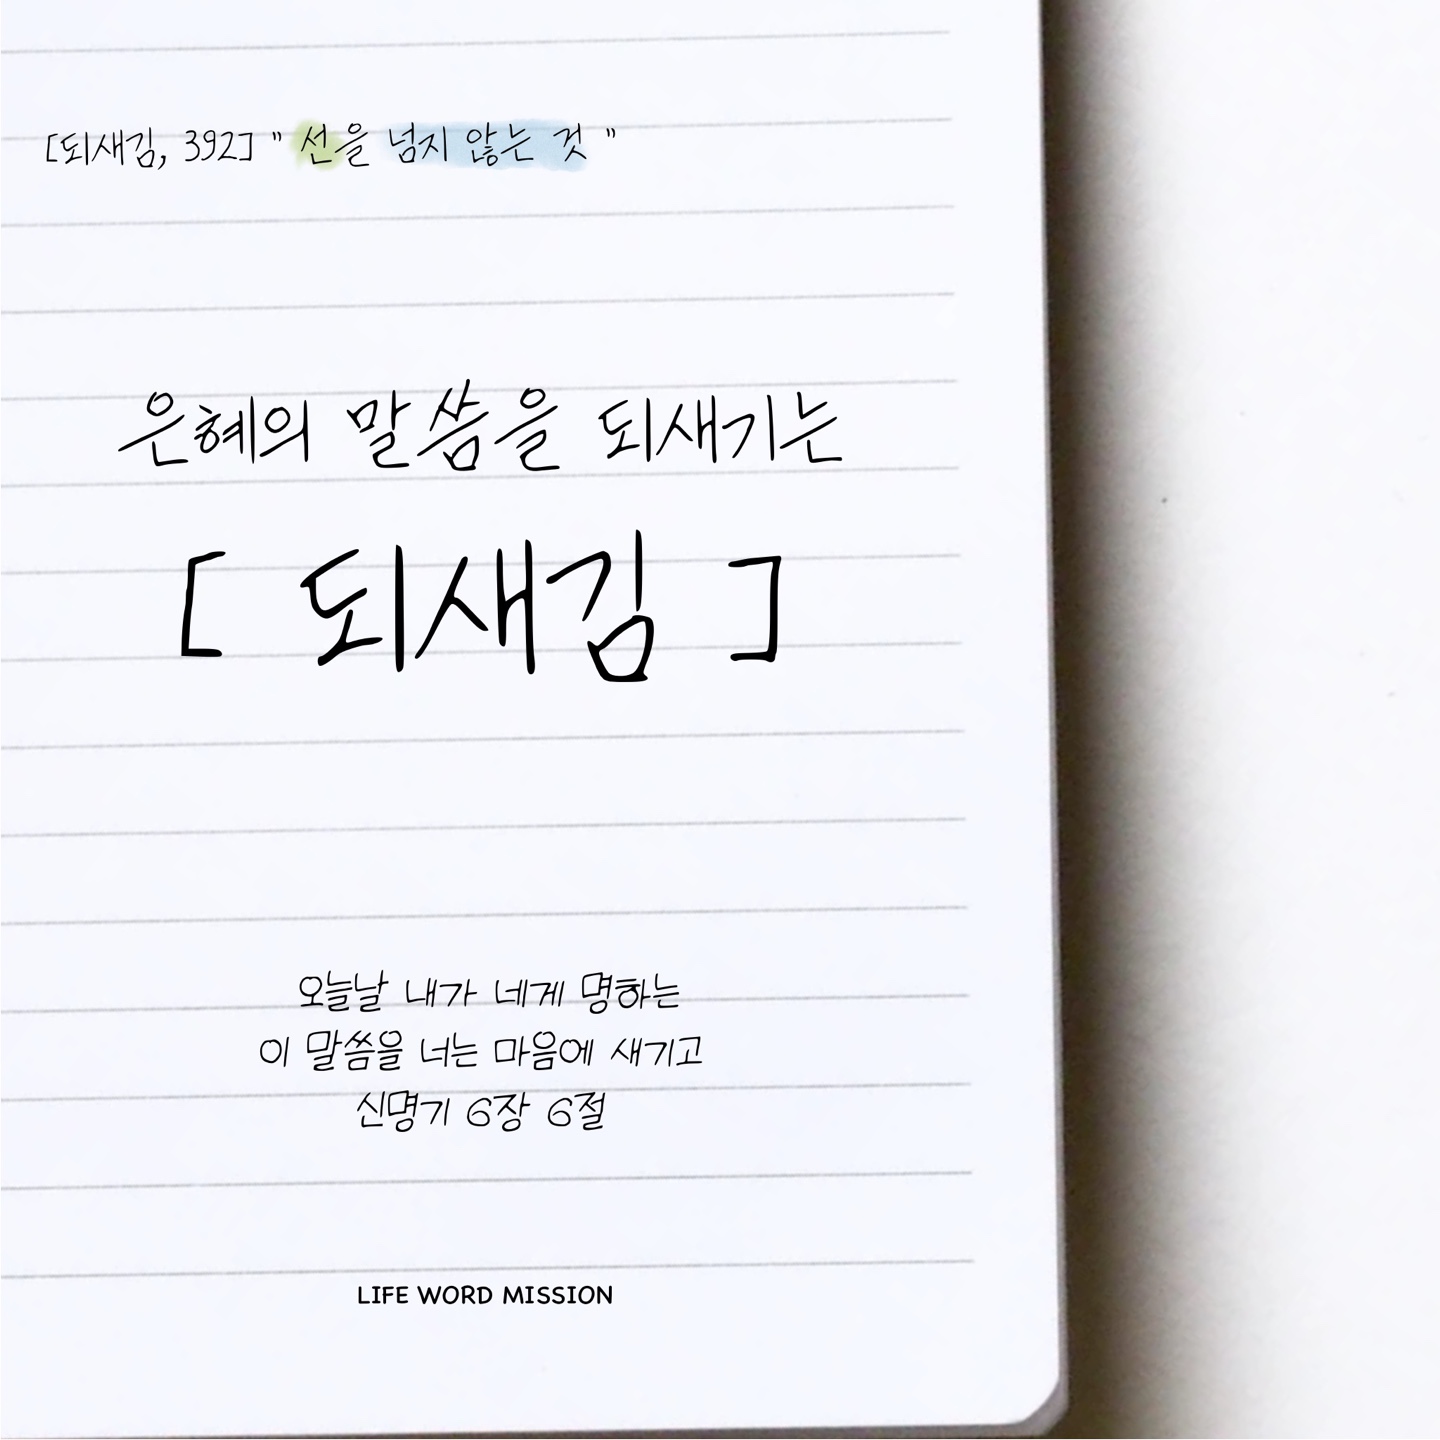 [되새김, 392] " 선을 넘지 않는 것 "
은혜의 말씀을 되새기는
[ 되새김 ]
오늘날 내가 네게 명하는
이 말씀을 너는 마음에 새기고
신명기 6장 6절
LIFE WORD MISSION